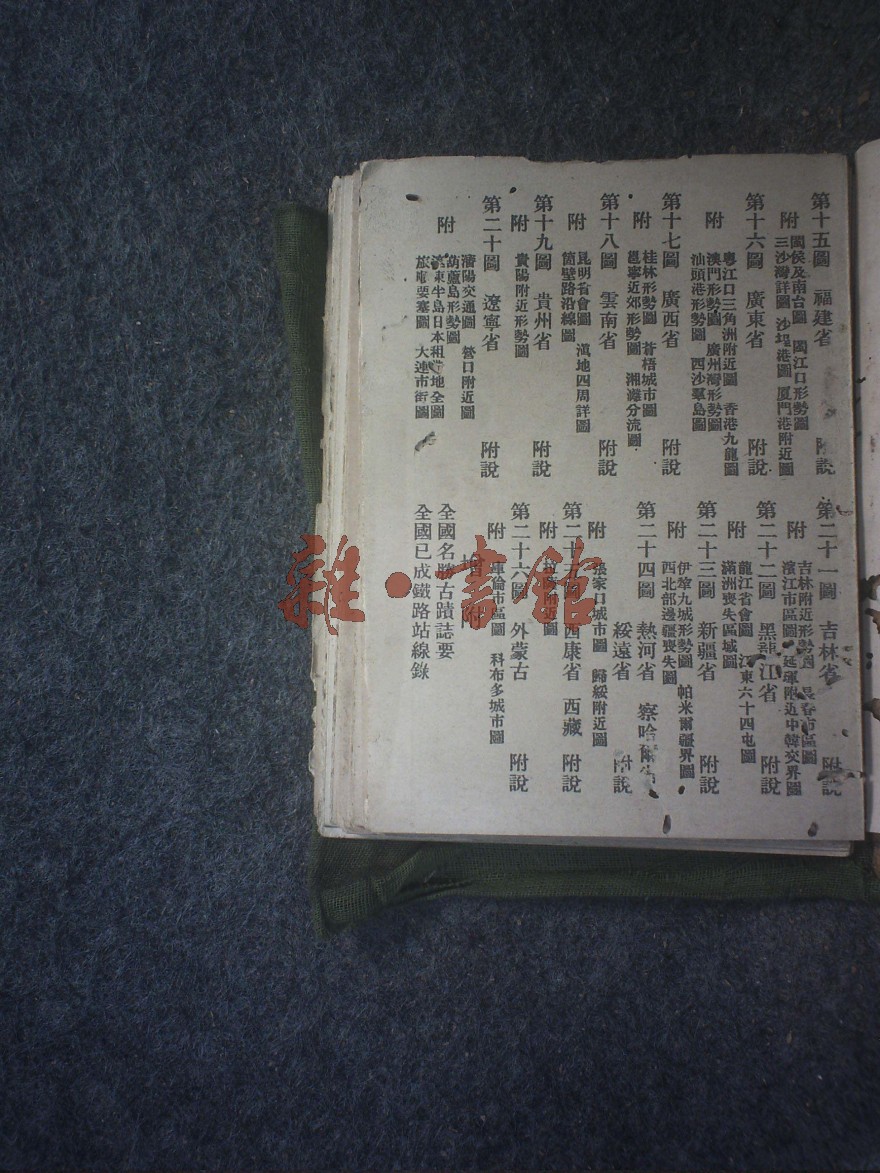 第十五圖　福建省　附說
附
閩侯及南台圖　閩江口形勢圖
三沙灣詳圖　沙埕港圖　厦門港附近圖
第十六圖　廣東省　附說
附
粵江口三角洲附近圖　香港九龍圖
澳門形勢圖　廣州灣形勢圖
汕頭港形勢圖　西沙羣島圖
第十七圖　廣西省　附說
附
桂林形勢圖　蒼梧城市圖
邕寧近郊形勢圖　湘灕分流圖
第十八圖　雲南省　附說
附
昆明省會圖　滇地四周詳圖
箇壁路沿線圖
第十九圖　貴州省　附說
附　貴陽附近形勢圖
第二十圖　遼寧省　附說
附
瀋陽交通圖　營口附近圖
葫蘆島形勢圖
東半島日本租地全圖
旅順要塞圖　大連市街圖
第二十一圖　吉林省　附說
附
吉林附近形勢圖　長春市區圖
濱江市區圖　延琿附近中韓交界圖
第二十二圖　黑龍江省　附說
附
龍江省會圖　江東六十四屯圖
滿洲喪失區域圖
第二十三圖　新疆省　附說
附
伊犂九城形勢圖　帕米爾疆界圖
西北部邊疆喪失圖
第二十四圖　熱河省　察哈爾省
綏遠省　附說
附　張家口城市圖　歸綏附近圖
第二十五圖　西康省　西藏　附說
附　附近圖
第二十六圖　外蒙古　附說
附　庫倫市區圖　科布多城市圖
增附
全國名勝古蹟誌要
全國已成鐵路站線錄
雜·書館